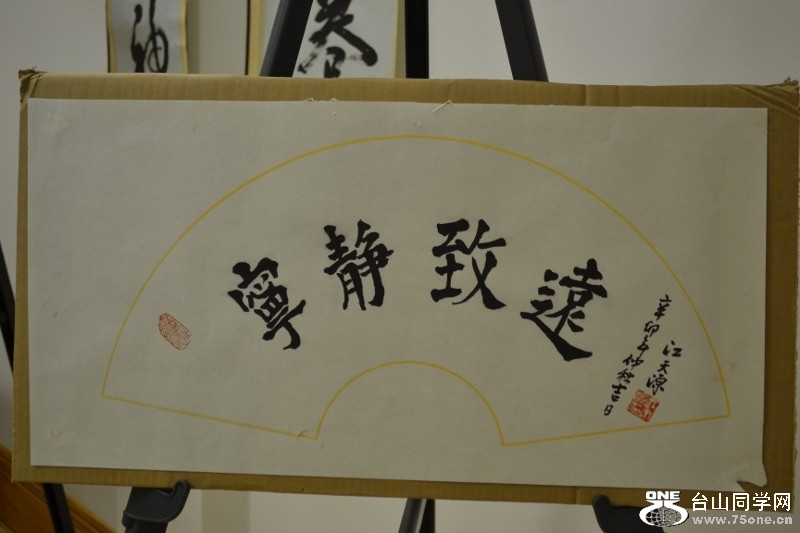 寧静致遠
辛卯年仲秋吉日
江天源
ONE
台山同学网
www.75one.cn